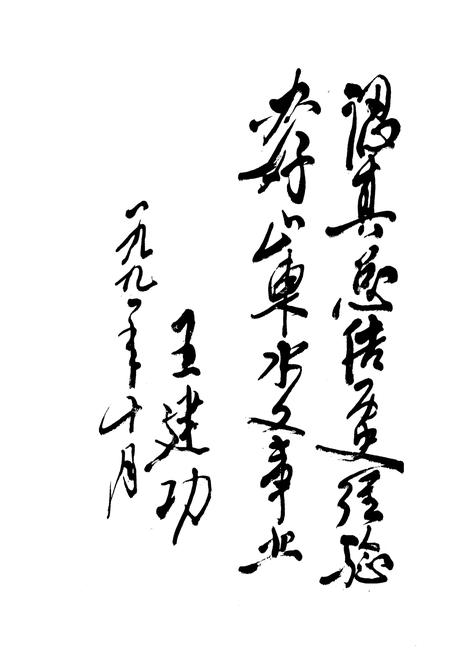 认真总结历史经验
办好山东水文事业
王建功
一九九一年十月